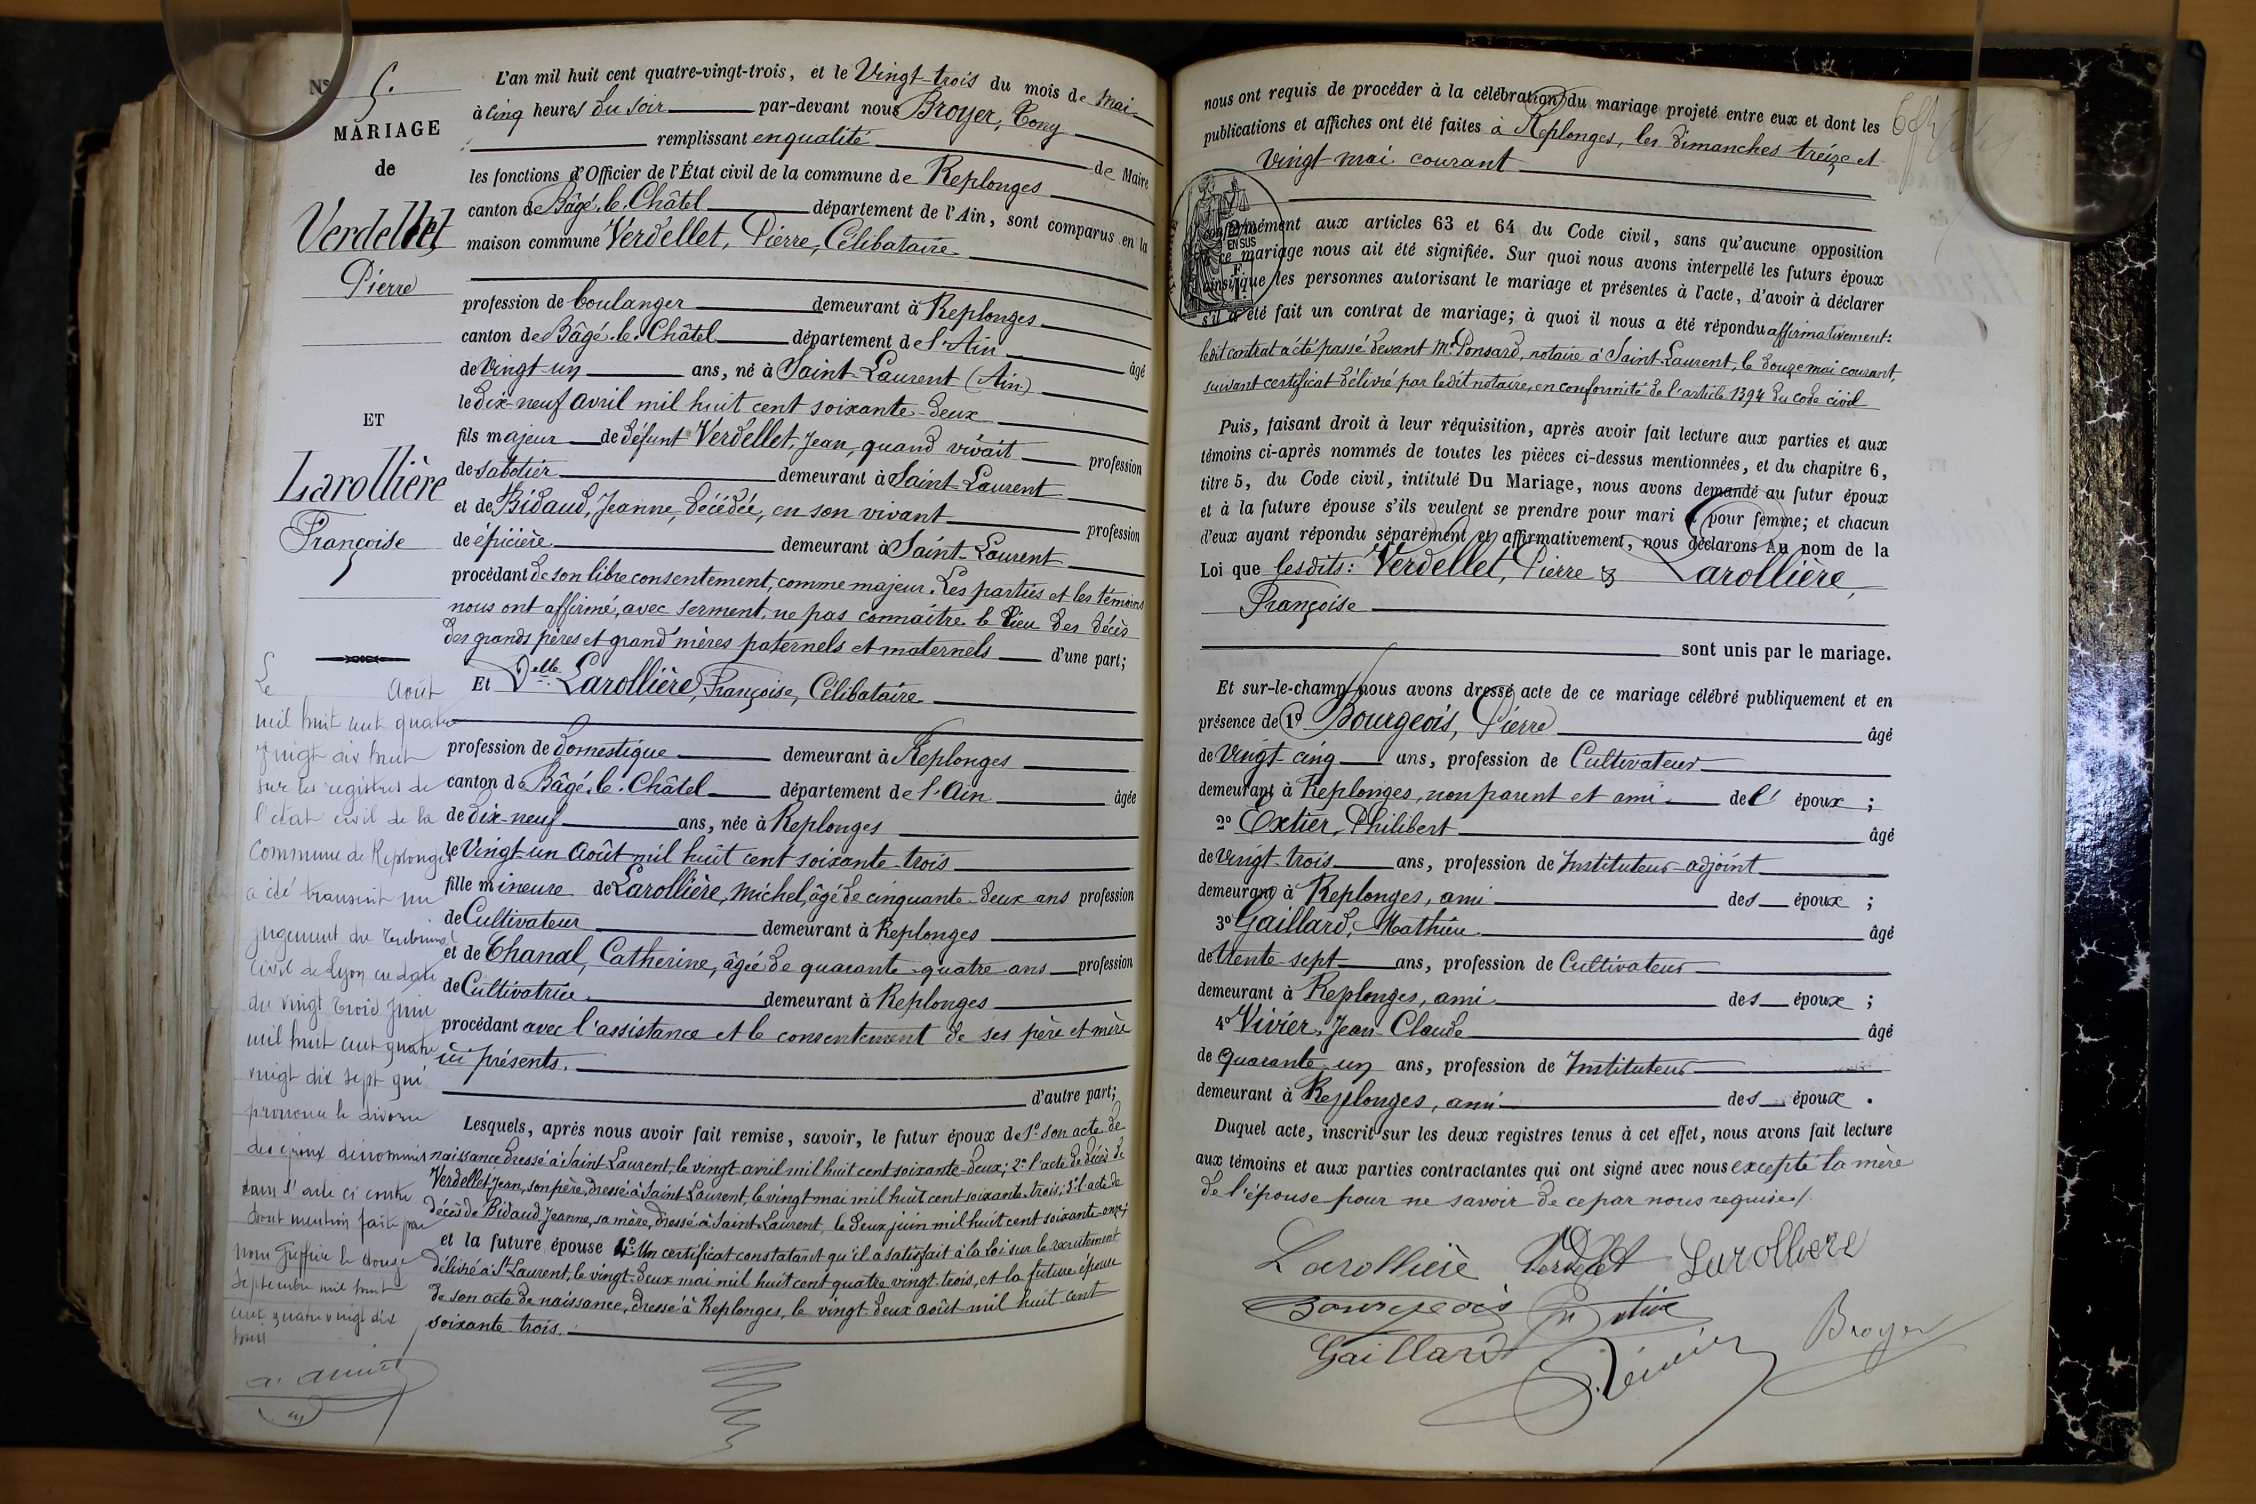 N° 5.
MARIAGE
de
Verdellet
Pierre
ET
Larollière
Françoise
Le Août
mil huit cent quatre
vingt dix huit
sur les registres de
l'état civil de la
Commune de Replonges
a été transcrit un
jugement du Tribunal
Civil de Lyon en date
du vingt trois Juin
mil huit cent quatre
vingt dix sept qui
prononce le divorce
des époux dénommés
dans l'acte ci contre
dont mention faite par
nous Greffier le douze
Septembre mil huit
cent quatre vingt dix
huit
L'an mil huit cent quatre-vingt-trois, et le Vingt-trois du mois de Mai
à cinq heures du soir par-devant nous Broyer, Tony
remplissant en qualité de Maire
les fonctions d'Officier de l'État civil de la commune de Replonges
canton de Bâgé-le-Châtel département de l'Ain, sont comparus en la
maison commune Verdellet, Pierre, Célibataire
profession de boulanger demeurant à Replonges
canton de Bâgé-le-Châtel département de l'Ain âgé
de Vingt-un ans, né à Saint-Laurent (Ain)
le dix-neuf avril mil huit cent soixante-deux
fils majeur de défunt Verdellet, Jean, quand vivait profession
de sabotier demeurant à Saint-Laurent
et de Bidaud, Jeanne, décédée, en son vivant profession
de épicière demeurant à Saint-Laurent
procédant de son libre consentement, comme majeur. Les parties et les témoins
nous ont affirmé, avec serment, ne pas connaître le lieu des décès
des grands pères et grand'mères paternels et maternels d'une part;
Et Delle Larollière, Françoise, Célibataire
profession de domestique demeurant à Replonges
canton de Bâgé-le-Châtel département de l'Ain âgée
de dix-neuf ans, née à Replonges
le Vingt-un Août mil huit cent soixante-trois
fille mineure de Larollière, Michel, âgé de cinquante-deux ans profession
de Cultivateur demeurant à Replonges
et de Chanal, Catherine, âgée de quarante-quatre ans profession
de Cultivatrice demeurant à Replonges
procédant avec l'assistance et le consentement de ses père et mère
ici présents.
d'autre part;
Lesquels, après nous avoir fait remise, savoir, le futur époux de 1° son acte de
naissance dressé à Saint-Laurent, le vingt avril mil huit cent soixante-deux; 2° l'acte de décès de
Verdellet Jean, son père, dressé à Saint-Laurent, le vingt mai mil huit cent soixante-trois; 3° l'acte de
décès de Bidaud Jeanne, sa mère, dressé à Saint-Laurent, le deux juin mil huit cent soixante-onze;
et la future épouse 4° Un certificat constatant qu'il a satisfait à la loi sur le recrutement
délivré à St Laurent, le vingt-deux mai mil huit cent quatre vingt trois, et la future épouse
de son acte de naissance, dressé à Replonges, le vingt deux août mil huit cent
soixante-trois.
nous ont requis de procéder à la célébration du mariage projeté entre eux et dont les
publications et affiches ont été faites à Replonges, les dimanches treize et
vingt mai courant
conformément aux articles 63 et 64 du Code civil, sans qu'aucune opposition
à ce mariage nous ait été signifiée. Sur quoi nous avons interpellé les futurs époux
ainsi que les personnes autorisant le mariage et présentes à l'acte, d'avoir à déclarer
s'il a été fait un contrat de mariage; à quoi il nous a été répondu affirmativement:
ledit contrat a été passé devant Me Ponsard, notaire à Saint-Laurent, le douze mai courant,
suivant certificat délivré par ledit notaire, en conformité de l'article 1394 du code civil
Puis, faisant droit à leur réquisition, après avoir fait lecture aux parties et aux
témoins ci-après nommés de toutes les pièces ci-dessus mentionnées, et du chapitre 6,
titre 5, du Code civil, intitulé Du Mariage, nous avons demandé au futur époux
et à la future épouse s'ils veulent se prendre pour mari et pour femme; et chacun
d'eux ayant répondu séparément et affirmativement, nous déclarons au nom de la
Loi que lesdits: Verdellet, Pierre & Larollière,
Françoise
sont unis par le mariage.
Et sur-le-champ nous avons dressé acte de ce mariage célébré publiquement et en
présence de 1° Bourgeois, Pierre âgé
de Vingt-cinq ans, profession de Cultivateur
demeurant à Replonges, non parent et ami de l' époux ;
2° Extier, Philibert âgé
de vingt-trois ans, profession de Instituteur-adjoint
demeurant à Replonges, ami des époux ;
3° Gaillard, Mathieu âgé
de trente-sept ans, profession de Cultivateur
demeurant à Replonges, ami des époux ;
4° Vivier, Jean-Claude âgé
de quarante-un ans, profession de Instituteur
demeurant à Replonges, ami des époux .
Duquel acte, inscrit sur les deux registres tenus à cet effet, nous avons fait lecture
aux témoins et aux parties contractantes qui ont signé avec nous excepté la mère
de l'épouse pour ne savoir de ce par nous requise.
Larollière Verdellet Larolliere
Bourgeois Extier
Gaillard Vivier Broyer